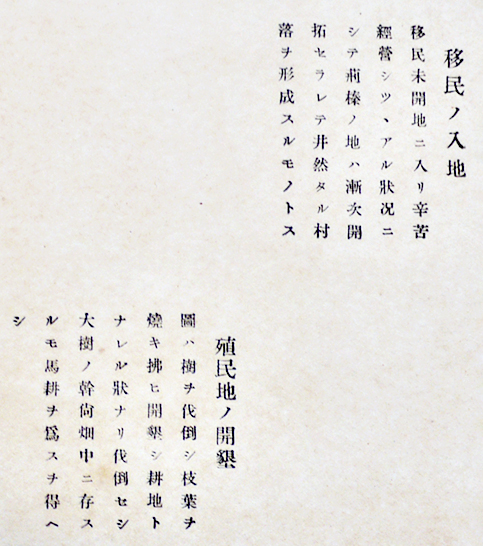 移民ノ入地
移民未開地ニ入リ辛苦
經營シツヽアル狀况ニ
シテ荊榛ノ地ハ漸次開
拓セラレテ井然タル村
落ヲ形成スルモノトス
殖民地ノ開墾
圖ハ樹ヲ伐倒シ枝葉ヲ
燒キ拂ヒ開墾シ耕地ト
ナレル狀ナリ伐倒セシ
大樹ノ幹尙畑中ニ存ス
ルモ馬耕ヲ爲スヲ得ヘ
シ